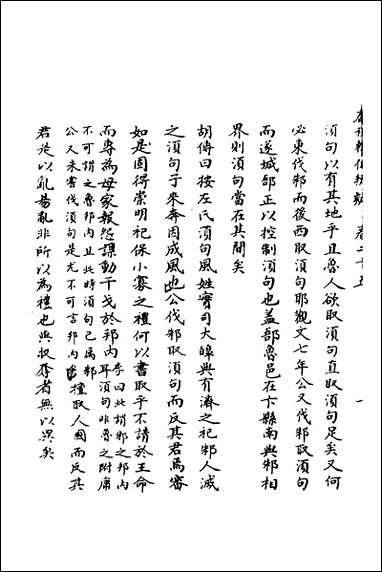 春秋輯傳辨疑 卷二十五
須句以有其地乎且魯人欲取須句直取須句足矣又何
必東伐邾而後西取須句耶觀文七年公又伐邾取須句
而遂城郚正以控制須句也蓋郚魯邑在卞縣南與邾相
界則須句當在其間矣
胡傳曰按左氏須句風姓實司大皥與有濟之祀邾人滅
之須句子來奔因成風也公伐邾取須句而反其君焉審
如是固得崇明祀保小寡之禮何以書取乎不請於王命
而專為母家報怨謀動干戈於邦内
李曰此謂邾之邦内
耳須句非魯之附庸
不可謂之魯邦内且此時須句已屬邾
公又未嘗伐須句是尤不可言邦内
擅取人國而反其
君是以亂易亂非所以為禮也與收奪者無以異矣
一